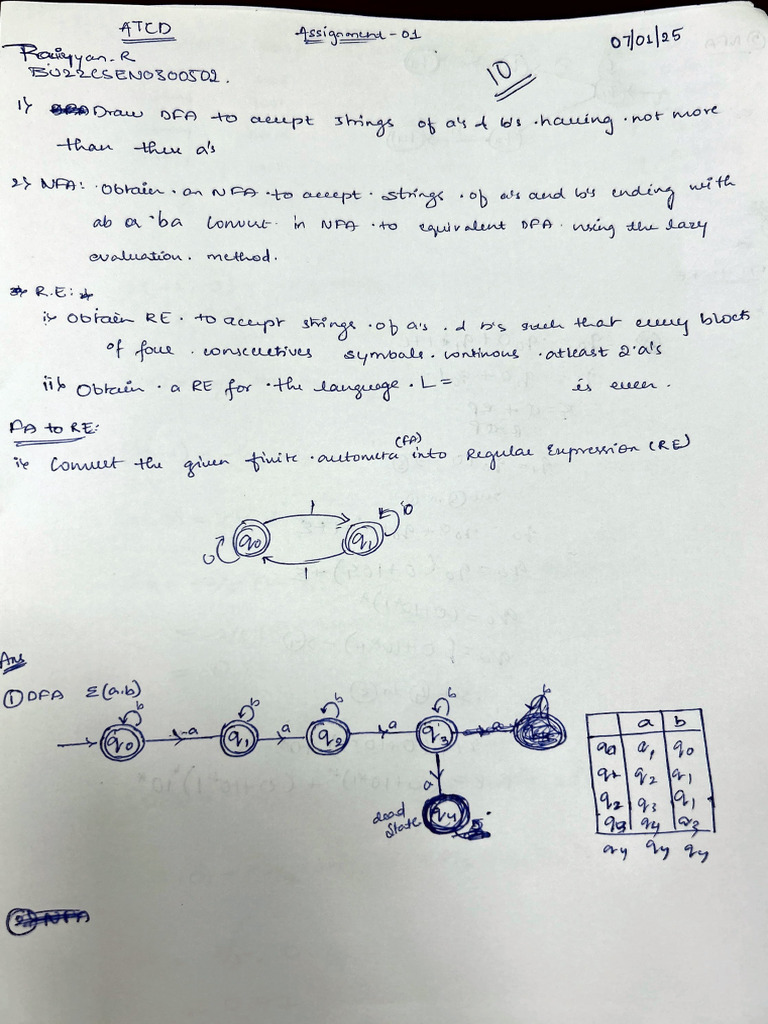 ATCD
Assignment-01
07/01/25
Raiyyan.R
BU22CSEN0300502.
10
1) Draw DFA to accept strings of a's & b's having not more
than three a's
2) NFA: Obtain an NFA to accept strings of a's and b's ending with
ab or ba Convert in NFA to equivalent DFA using the lazy
evaluation method.
* R.E: *
i) Obtain RE to accept strings of a's & b's such that every block
of four consecutives symbols continous atleast 2 a's
ii) Obtain a RE for the language L = is even.
FA to RE:
i) Convert the given finite automata (FA) into Regular Expression (RE)
1
0 q0 q1 0
1
Ans
① DFA Σ(a.b)
b b b b b
q0 a q1 a q2 a q3 a
a
dead state q4
a b
q0 q1 q0
q1 q2 q1
q2 q3 q1
q3 q4 q3
q4 q4 q4
② NFA